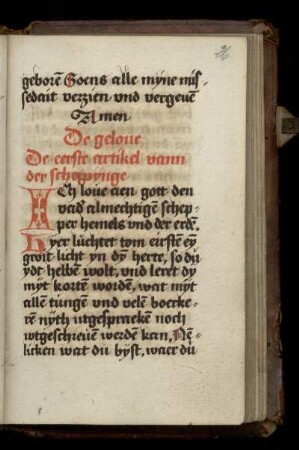 26
geborē Soens alle myne mis-
sedait verzien und vergeuē
Amen
De geloue
De eerste artikel vann
der scheppynge
Ich loue aen gott den
vad almechtigē schep-
per hemels und der erdē.
Hyer lüchtet tom eirstē eȳ
groit licht yn dȳ herte, so dü
ydt helbē wolt, und leret dy
myt kortē wordē, wat mȳt
allē tungē und velē boerke-
rē nyth utgespraekē noch
utgeschreuē werdē kan. Nē-
licken wat du byst, waer dü